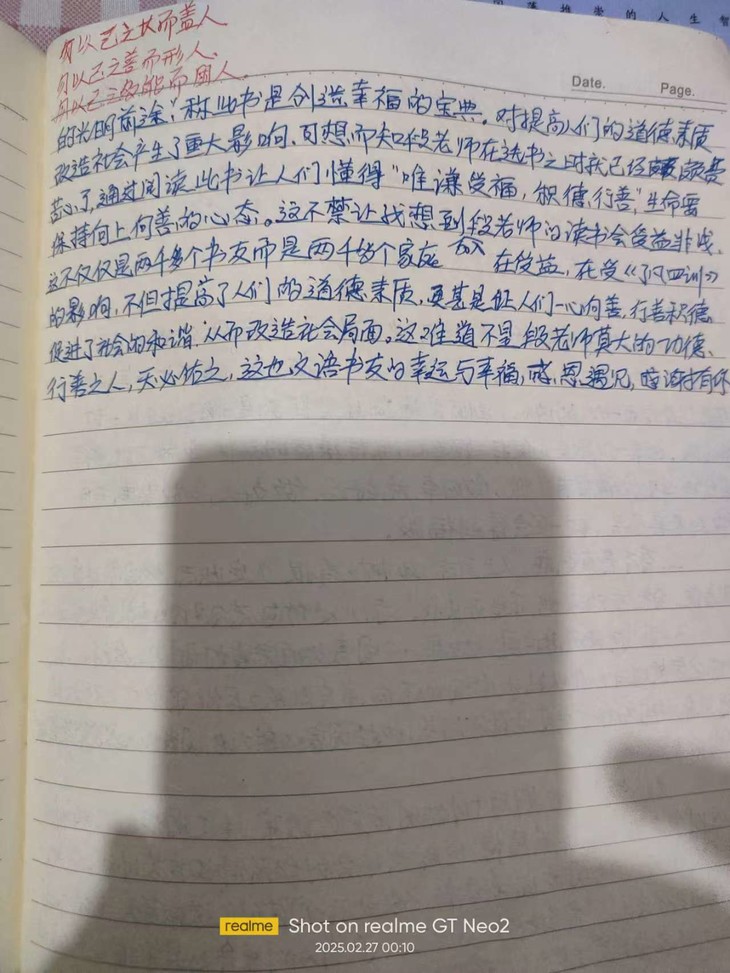 的人生智
勿以己之长而盖人
勿以己之善而形人.
勿以己之多能而困人.
Date.
Page.
的光明前途,"称此书是创造幸福的宝典。对提高人们的道德素质
改造社会产生了重大影响,可想而知段老师在选书之时就已经颇费
苦心了,通过阅读此书让人们懂得"唯谦受福,积德行善",生命要
保持向上向善的心态。这不禁让我想到段老师的读书会受益非浅.
这不仅仅是两千多个书友而是两千多个家庭 在受益,在受《了凡四训》
的影响,不但提高了人们的道德素质,更甚是让人们一心向善,行善积德
促进了社会的和谐.从而改造社会局面。这难道不是段老师莫大的功德、
行善之人,天必佑之,这也文语书友的幸运与幸福,感恩遇见,感谢有你
realme
Shot on realme GT Neo2
2025.02.27 00:10